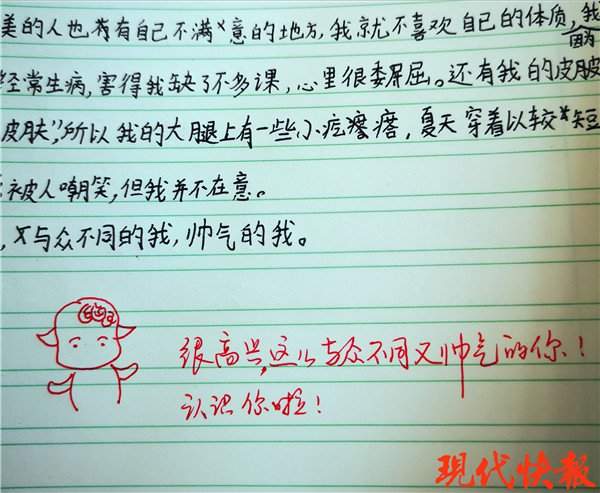 美的人也有自己不满意的地方,我就不喜欢自己的体质,我
因为
经常生病,害得我缺了不多课,心里很委屈。还有我的皮肤
皮肤”,所以我的大腿上有一些小疙瘩,夏天穿着以较短
被人嘲笑,但我并不在意。
,又与众不同的我,帅气的我。
很高兴,这么与众不同又帅气的你!
认识你啦!
现代快报